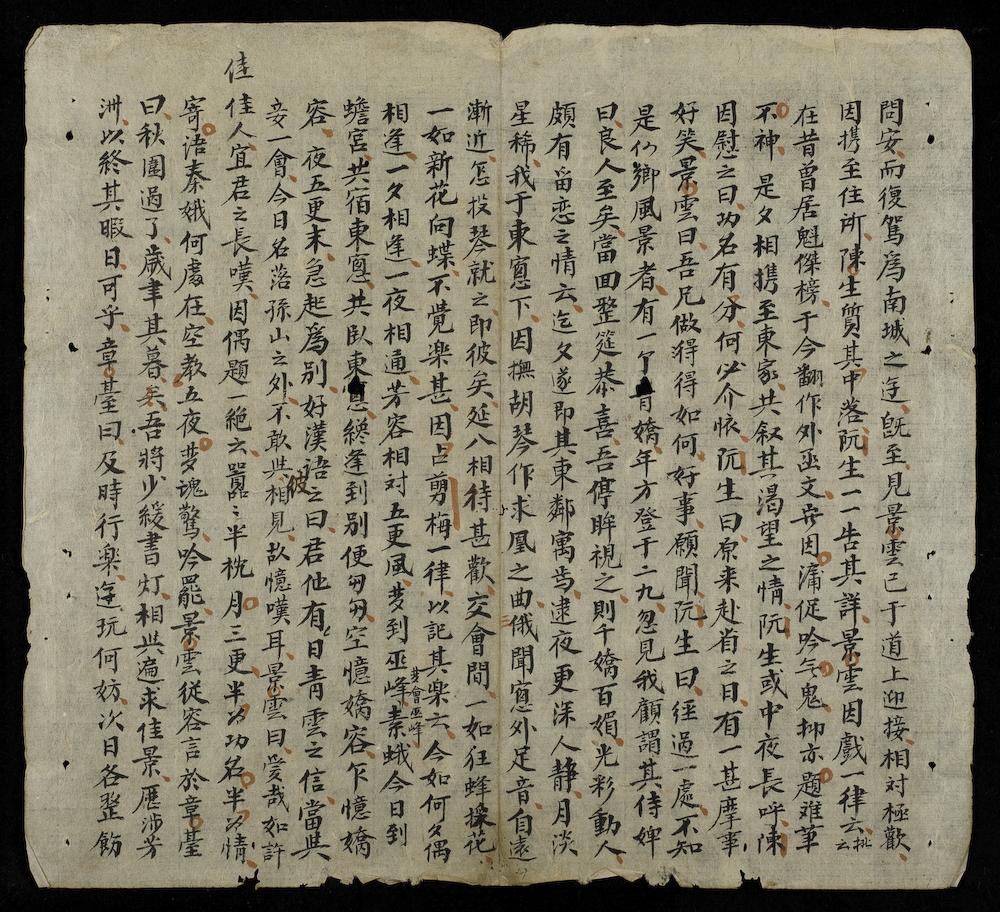 問安而復駕為南城之迬既至見景雲已于道上迎接相対極歡
因携至住所陳生質其中落阮生一一告其詳景雲因戲一律云 挑云
在昔曾居魁傑榜于今翻作外巫文 因 従吟 鬼抑亦題难筆
不神 是夕相携至東家共叙其渴望之情阮生或中夜長呼陳
因慰之曰功名有分何必介懷阮生曰原来赴省之日有一甚摩事
好笑景雲曰吾兄做得得如何好事願聞阮生曰経過一處不知
是仙鄉風景者有一 嬌年方登于二九忽見我顧謂其侍婢
曰良人至矣當回整筵恭喜吾停眸視之則千嬌百媚光彩動人
頗有畄恋之情云迄夕遂即其東鄰寓焉逮夜更深人静月淡
星稀我于東窓下因撫胡琴作求凰之曲俄聞窓外足音自遠
漸近怎投琴就之即彼矣延八相待甚歡交會間一如狂蜂採花
一如新花向蝶不覺楽甚因占剪梅一律以記其楽云今如何夕偶
相逢一夕相逢一夜相通芳容相対五更風夢到巫峰素蛾今日到
夢會巫峰
蟾宮共宿東窓共臥東窓縂逢到别便匆匆空憶嬌容乍憶嬌
容夜五更末急起為别好漢語之曰君他有日青雲之信當與
妾一會今日名落孫山之外不敢與彼相見故憶嘆耳景雲曰愛哉如許
佳
佳人宜君之長嘆因偶題一絶云 半枕月三更半為功名半為情
寄语秦娥何處在空教五夜夢魂驚吟罷景雲従容言於章臺
曰秋圍過了歲聿其暮矣吾將少緩書灯相共遍求佳景歷涉芳
洲以終其暇日可乎章臺曰及時行楽迬玩何妨次日各整飭